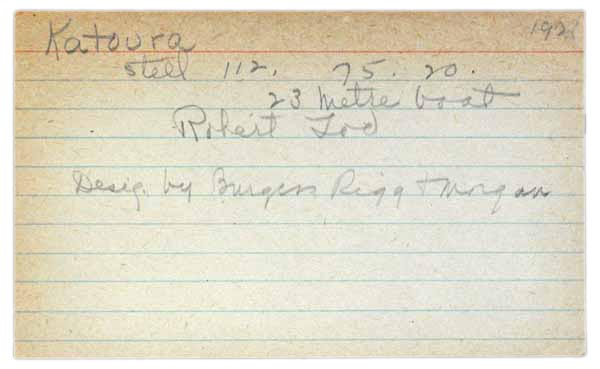 Katoura
steel 112. 75. 20.
23 Metre boat
Robert Tod
Desig. by Burgess Rigg + Morgan